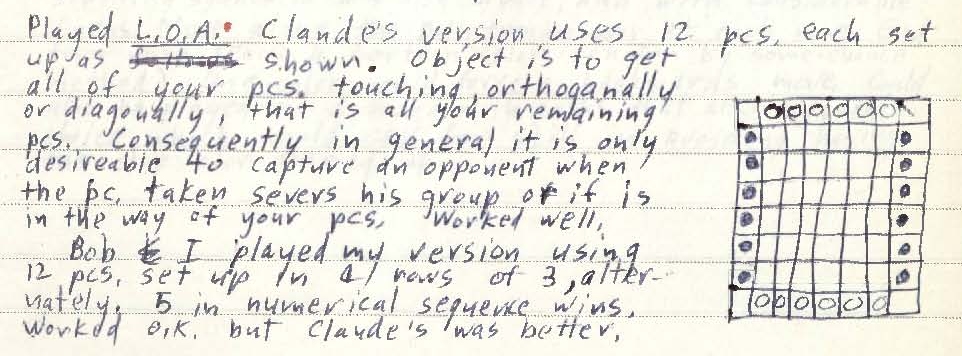 Played L.O.A. Claude's version uses 12 pcs. each set
up as shown. Object is to get
all of your pcs. touching orthoganally
or diagonally, that is all your remaining
pcs. Consequently in general it is only
desireable to capture an opponent when
the pc. taken severs his group or if is
in the way of your pcs. Worked well.
Bob & I played my version using
12 pcs. set up in 4 rows of 3, alter-
nately. 5 in numerical sequence wins.
Worked O.K. but Claude's was better.